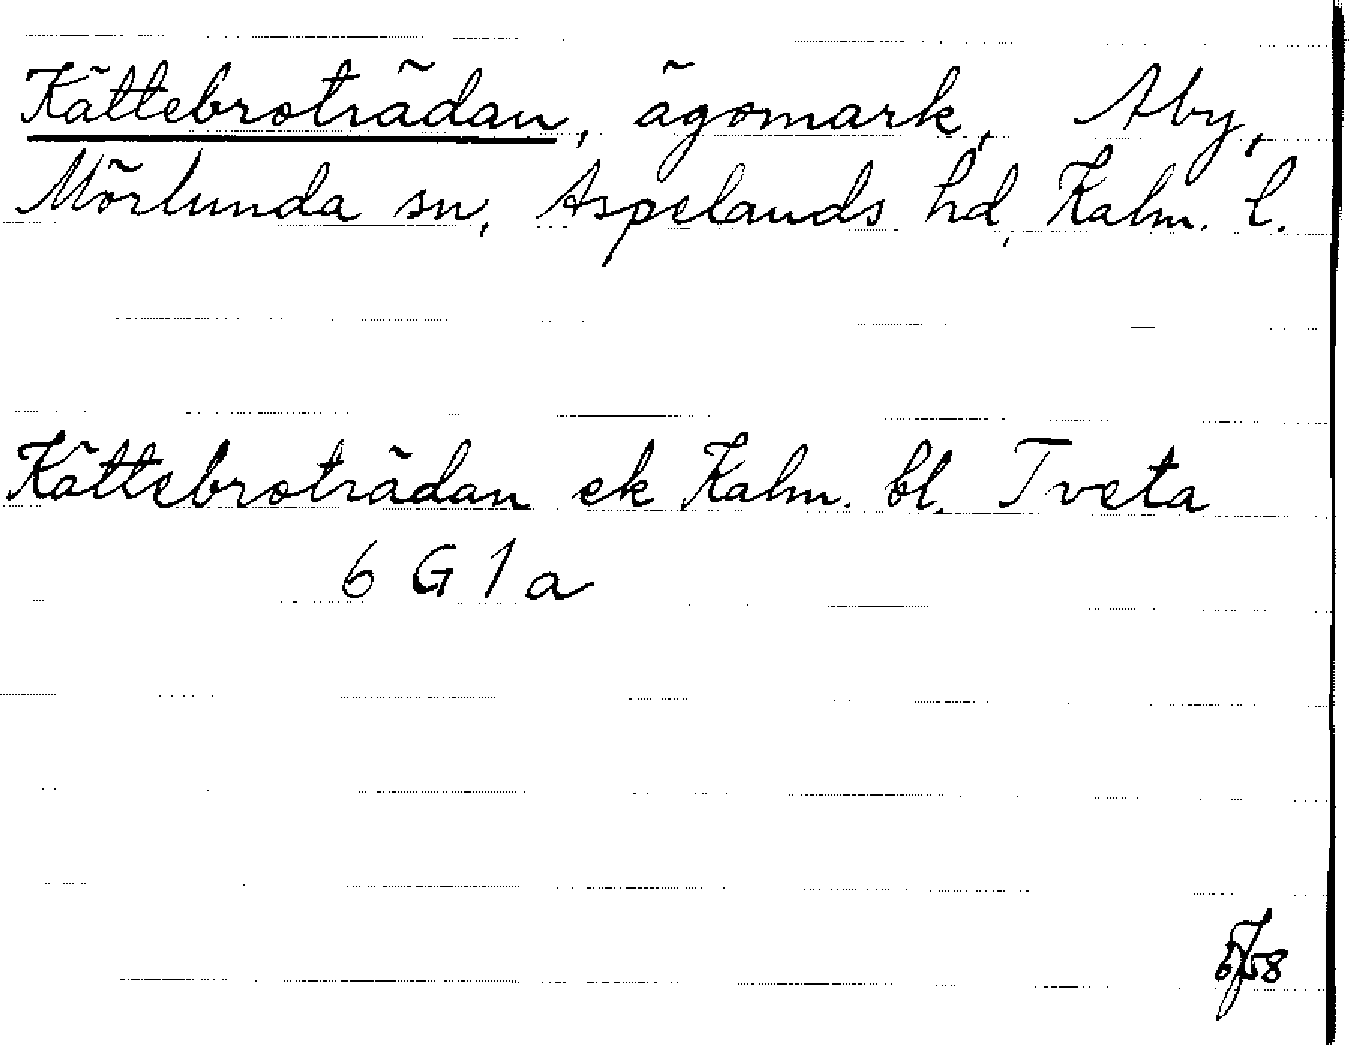 Kättebroträdan, ägomark, Aby,
Mörlunda sn, Aspelands hd, Kalm. l.
Kättebroträdan ek Kalm. bl. Tveta
6 G 1 a